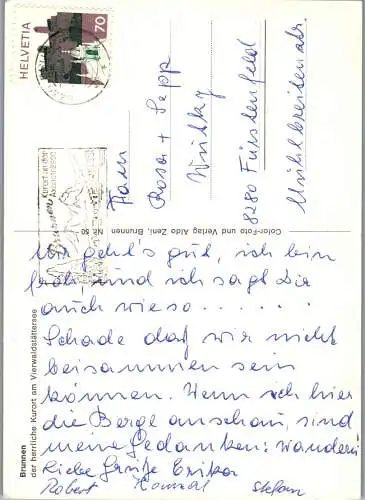 HELVETIA
70
Kurort an der
Axenstrasse
Brunnen
Fam.
Rosa + Sepp
Wutky
8280 Fürstenfeld
Mühlbreitenstr.
Color-Foto und Verlag Aldo Zeni, Brunnen Nr. 50
Brunnen
der herrliche Kurort am Vierwaldstättersee
Mir geht's gut, ich bin
froh, und ich sag's Dir
auch wieso . . . . . .
Schade daß wir nicht
beisammen sein
können. Wenn ich hier
die Berge anschau, sind
meine Gedanken: wandern
Liebe Grüße Erika
Robert Konrad Stefan